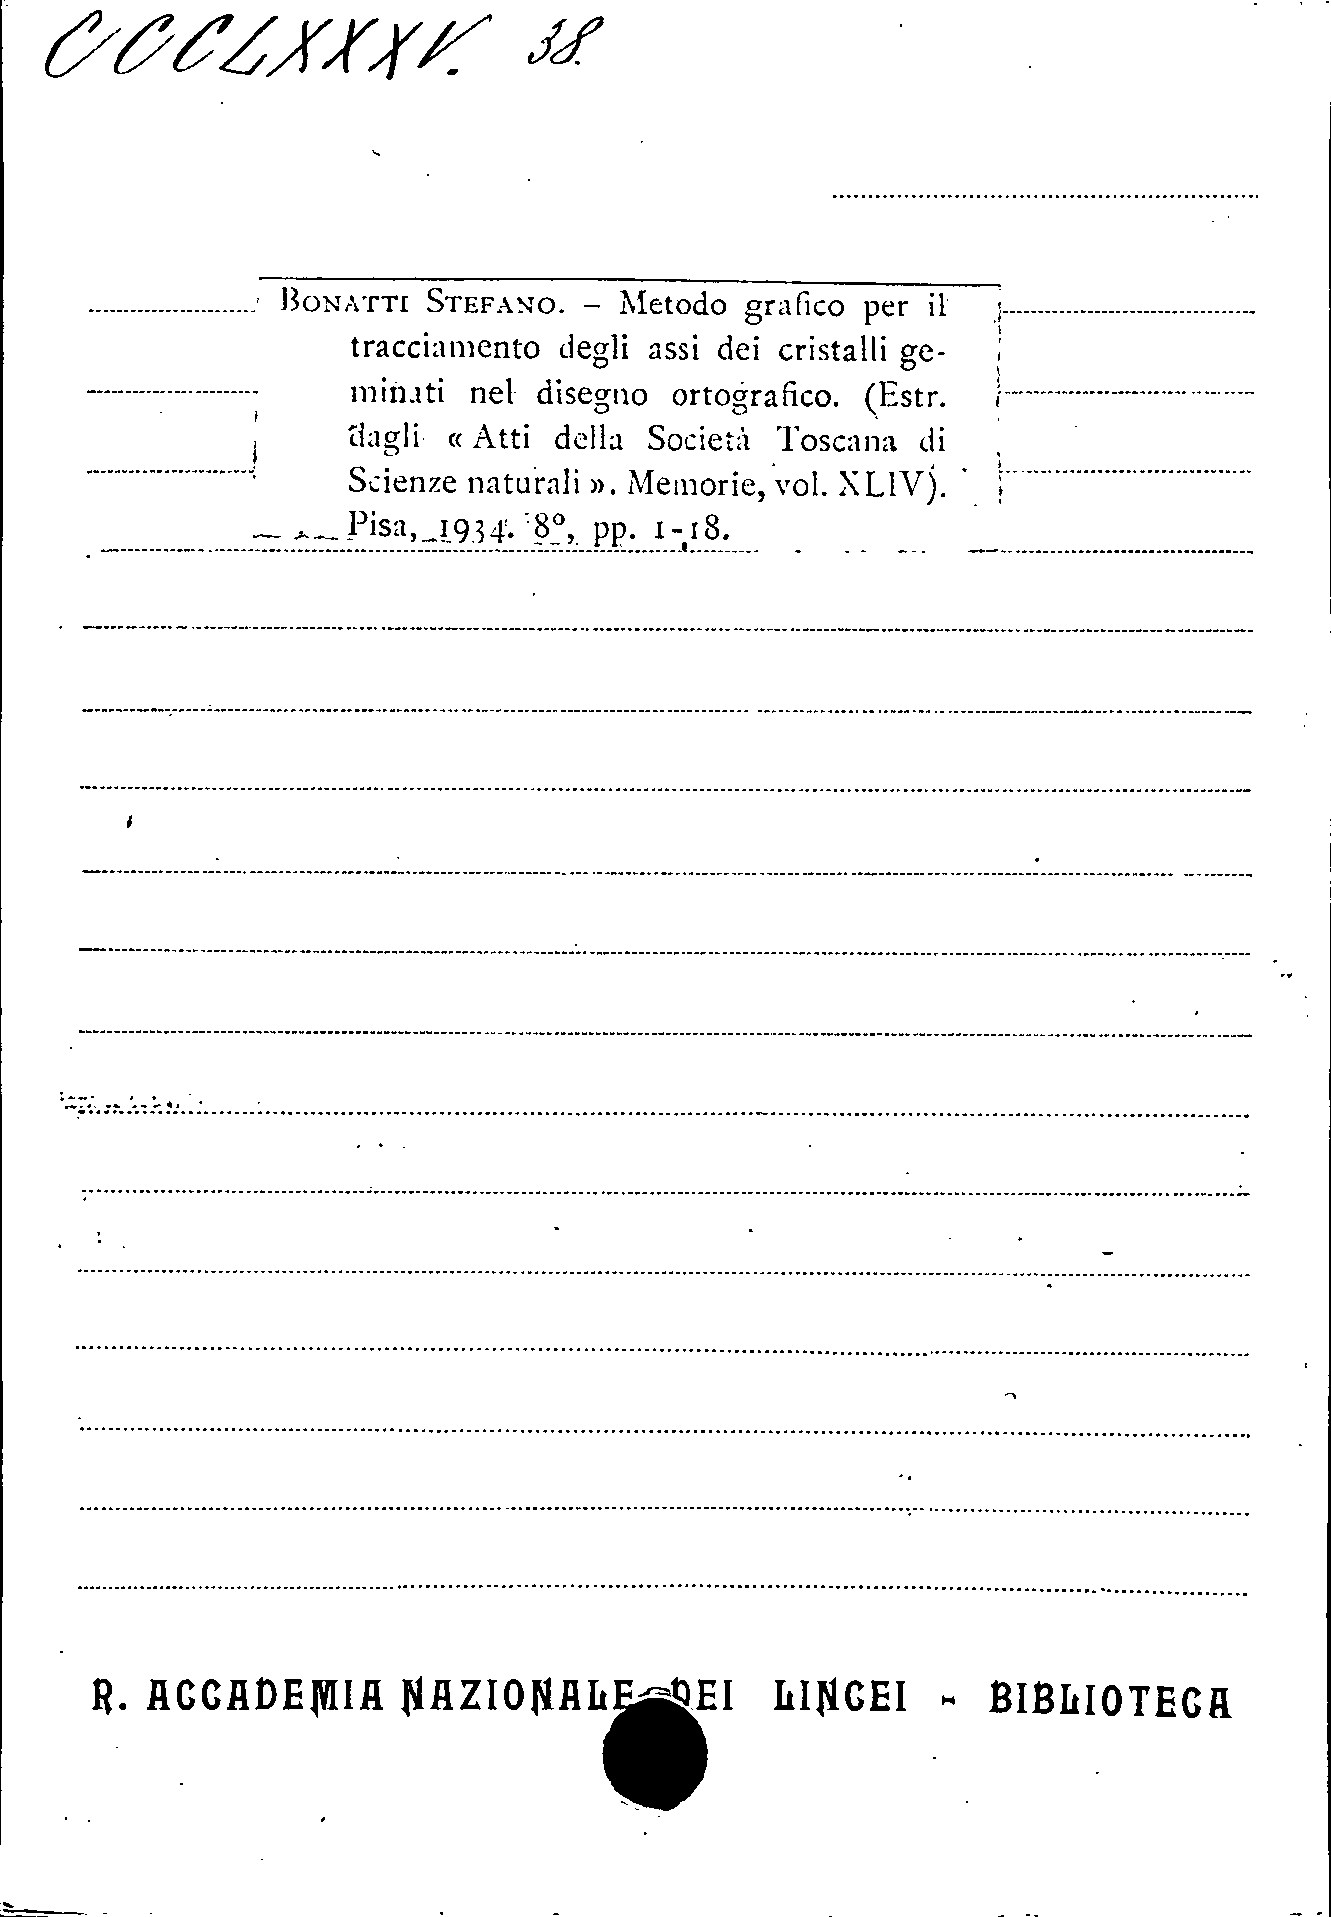 CCCLXXXV. 38.
BONATTI STEFANO. – Metodo grafico per il
tracciamento degli assi dei cristalli ge-
minati nel disegno ortografico. (Estr.
dagli « Atti della Società Toscana di
Scienze naturali ». Memorie, vol. XLIV).
Pisa, 1934. 8º, pp. 1-18.
R. ACCADEMIA NAZIONALE DEI LINCEI - BIBLIOTECA